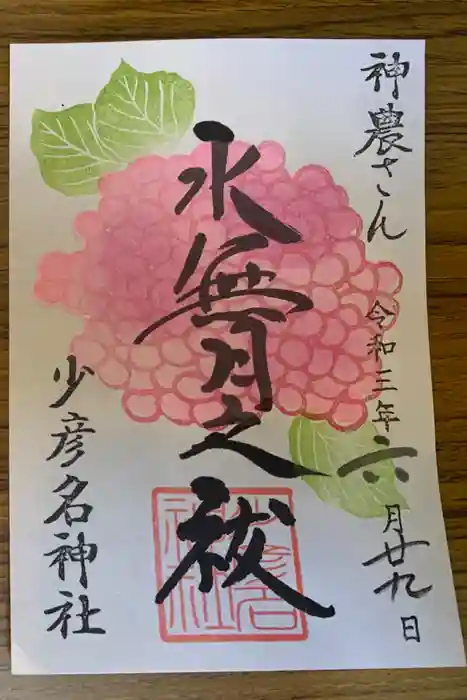 神農さん
令和三年六月廿九日
水無月之祓
少彦名神社